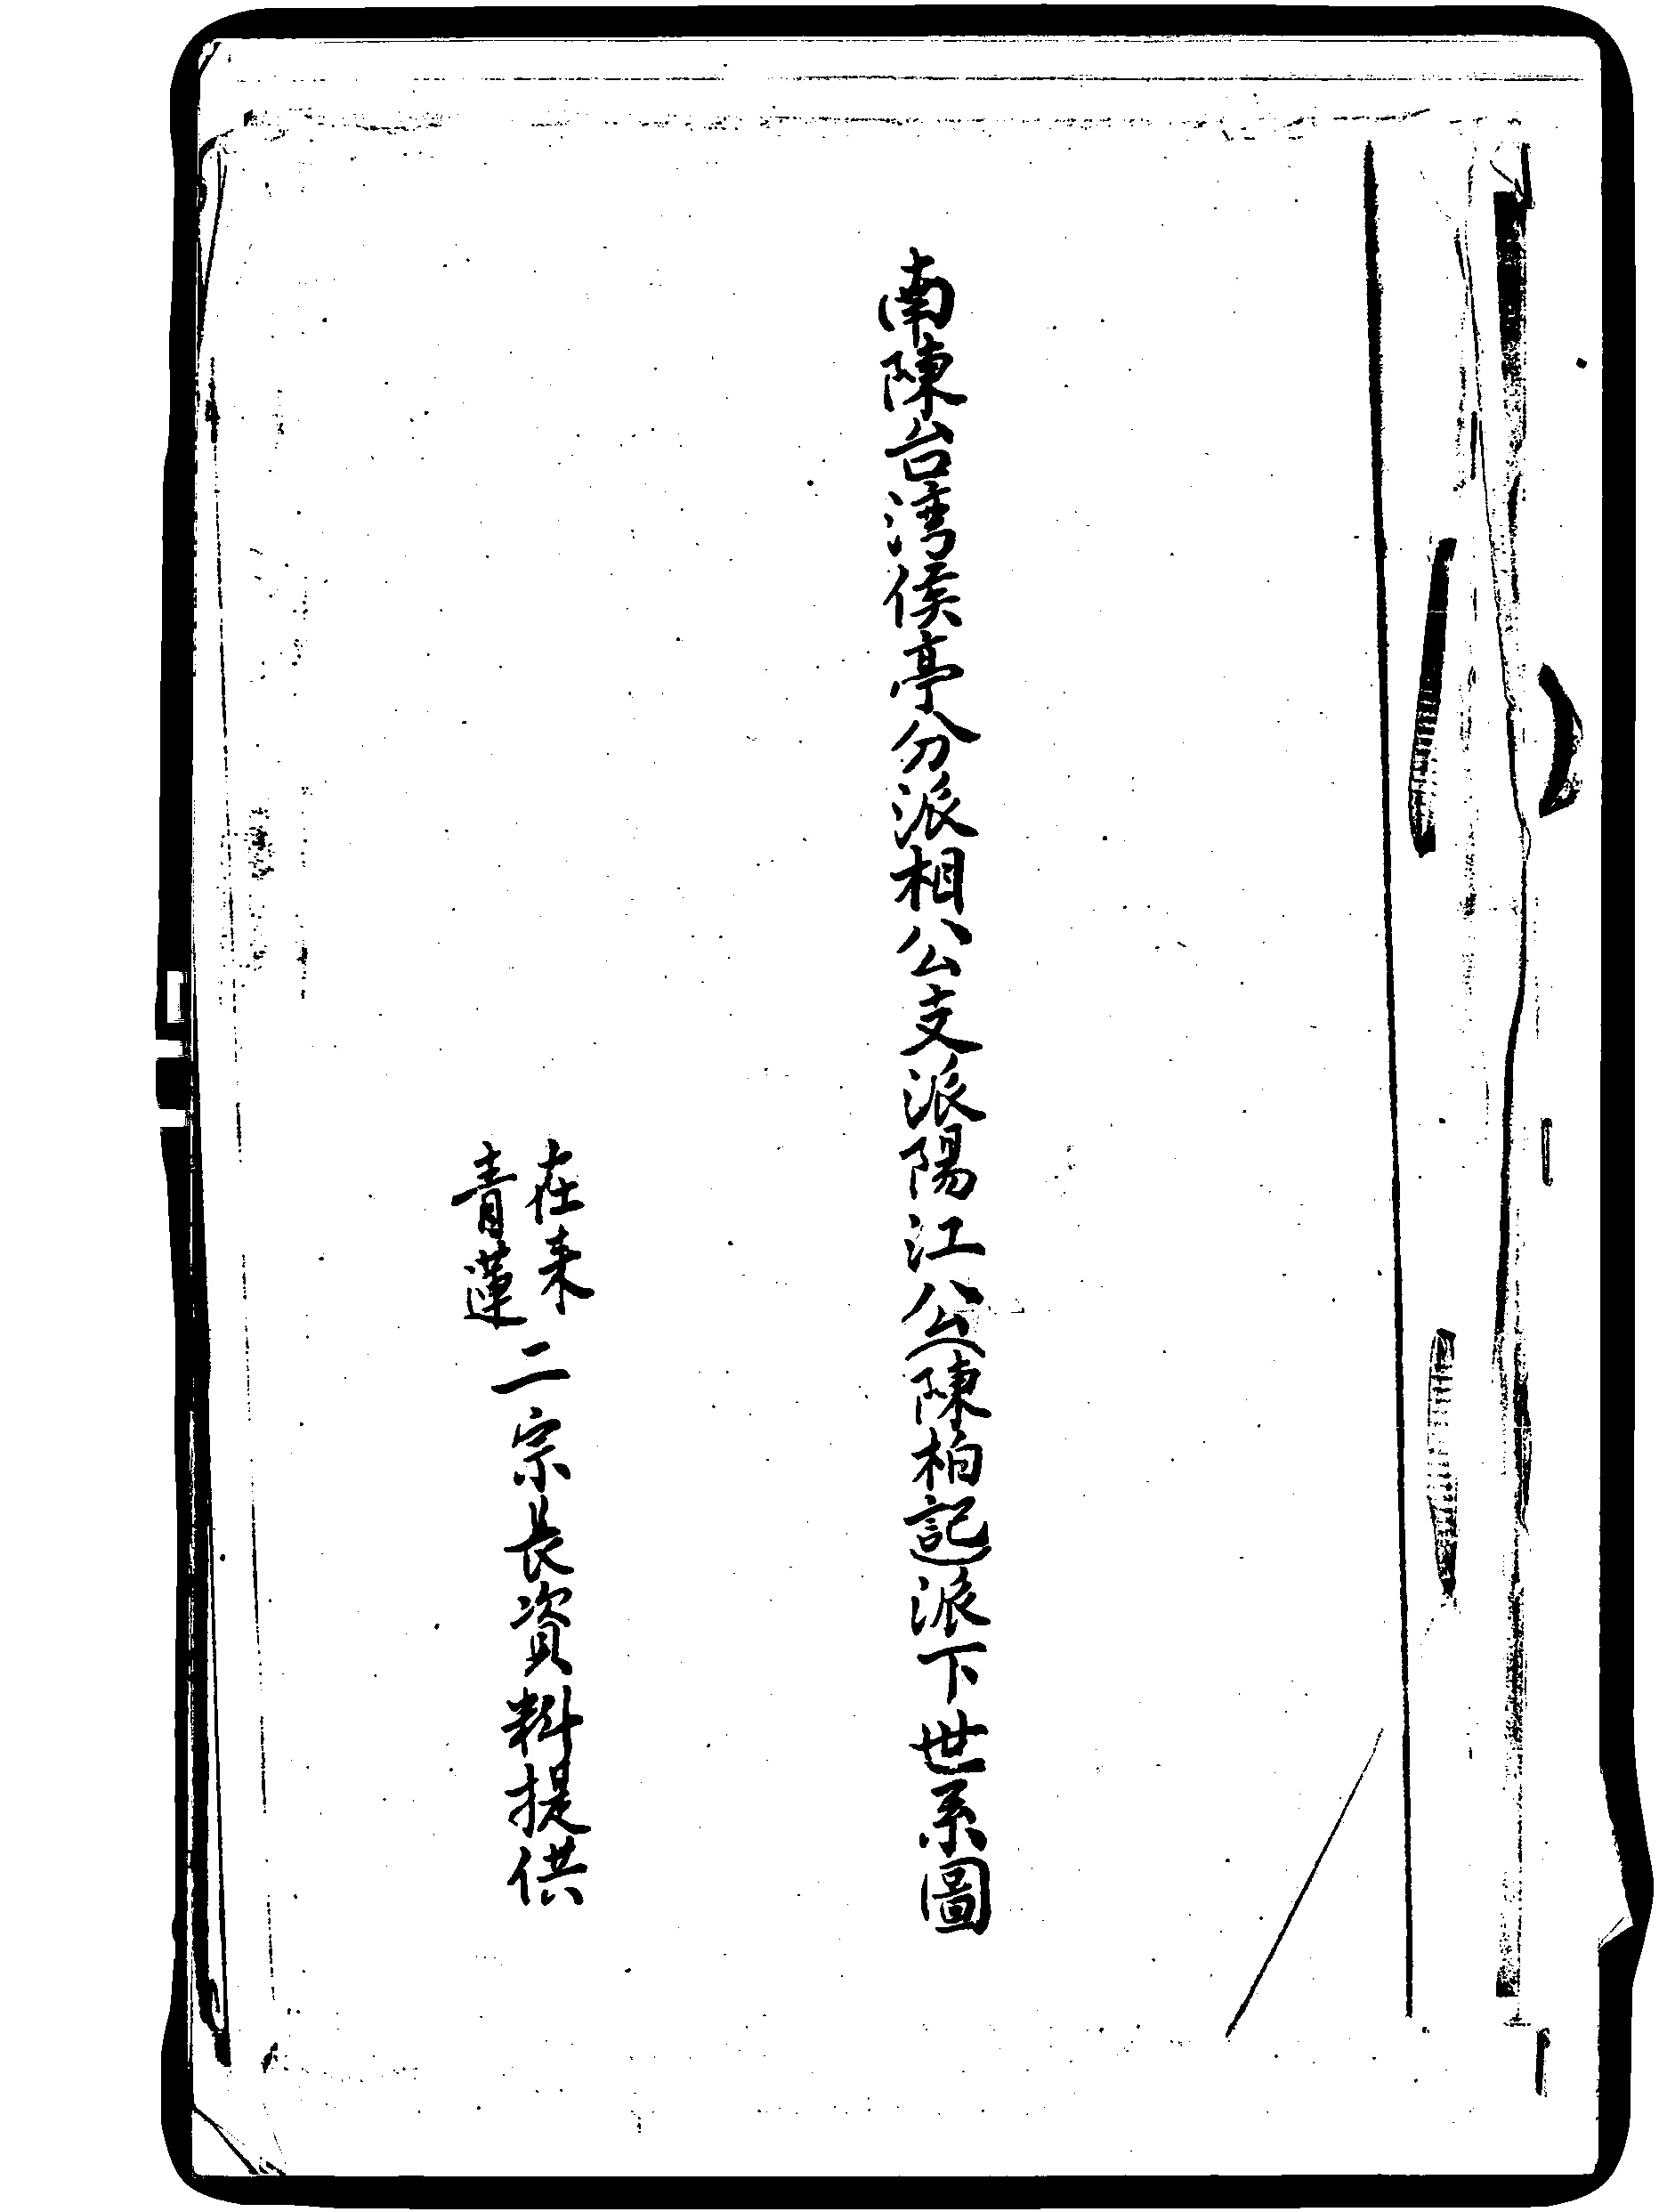 南陳台湾侯亭分派相公支派陽江公(陳柏記)派下世系圖
在来
青蓮
二宗長資料提供